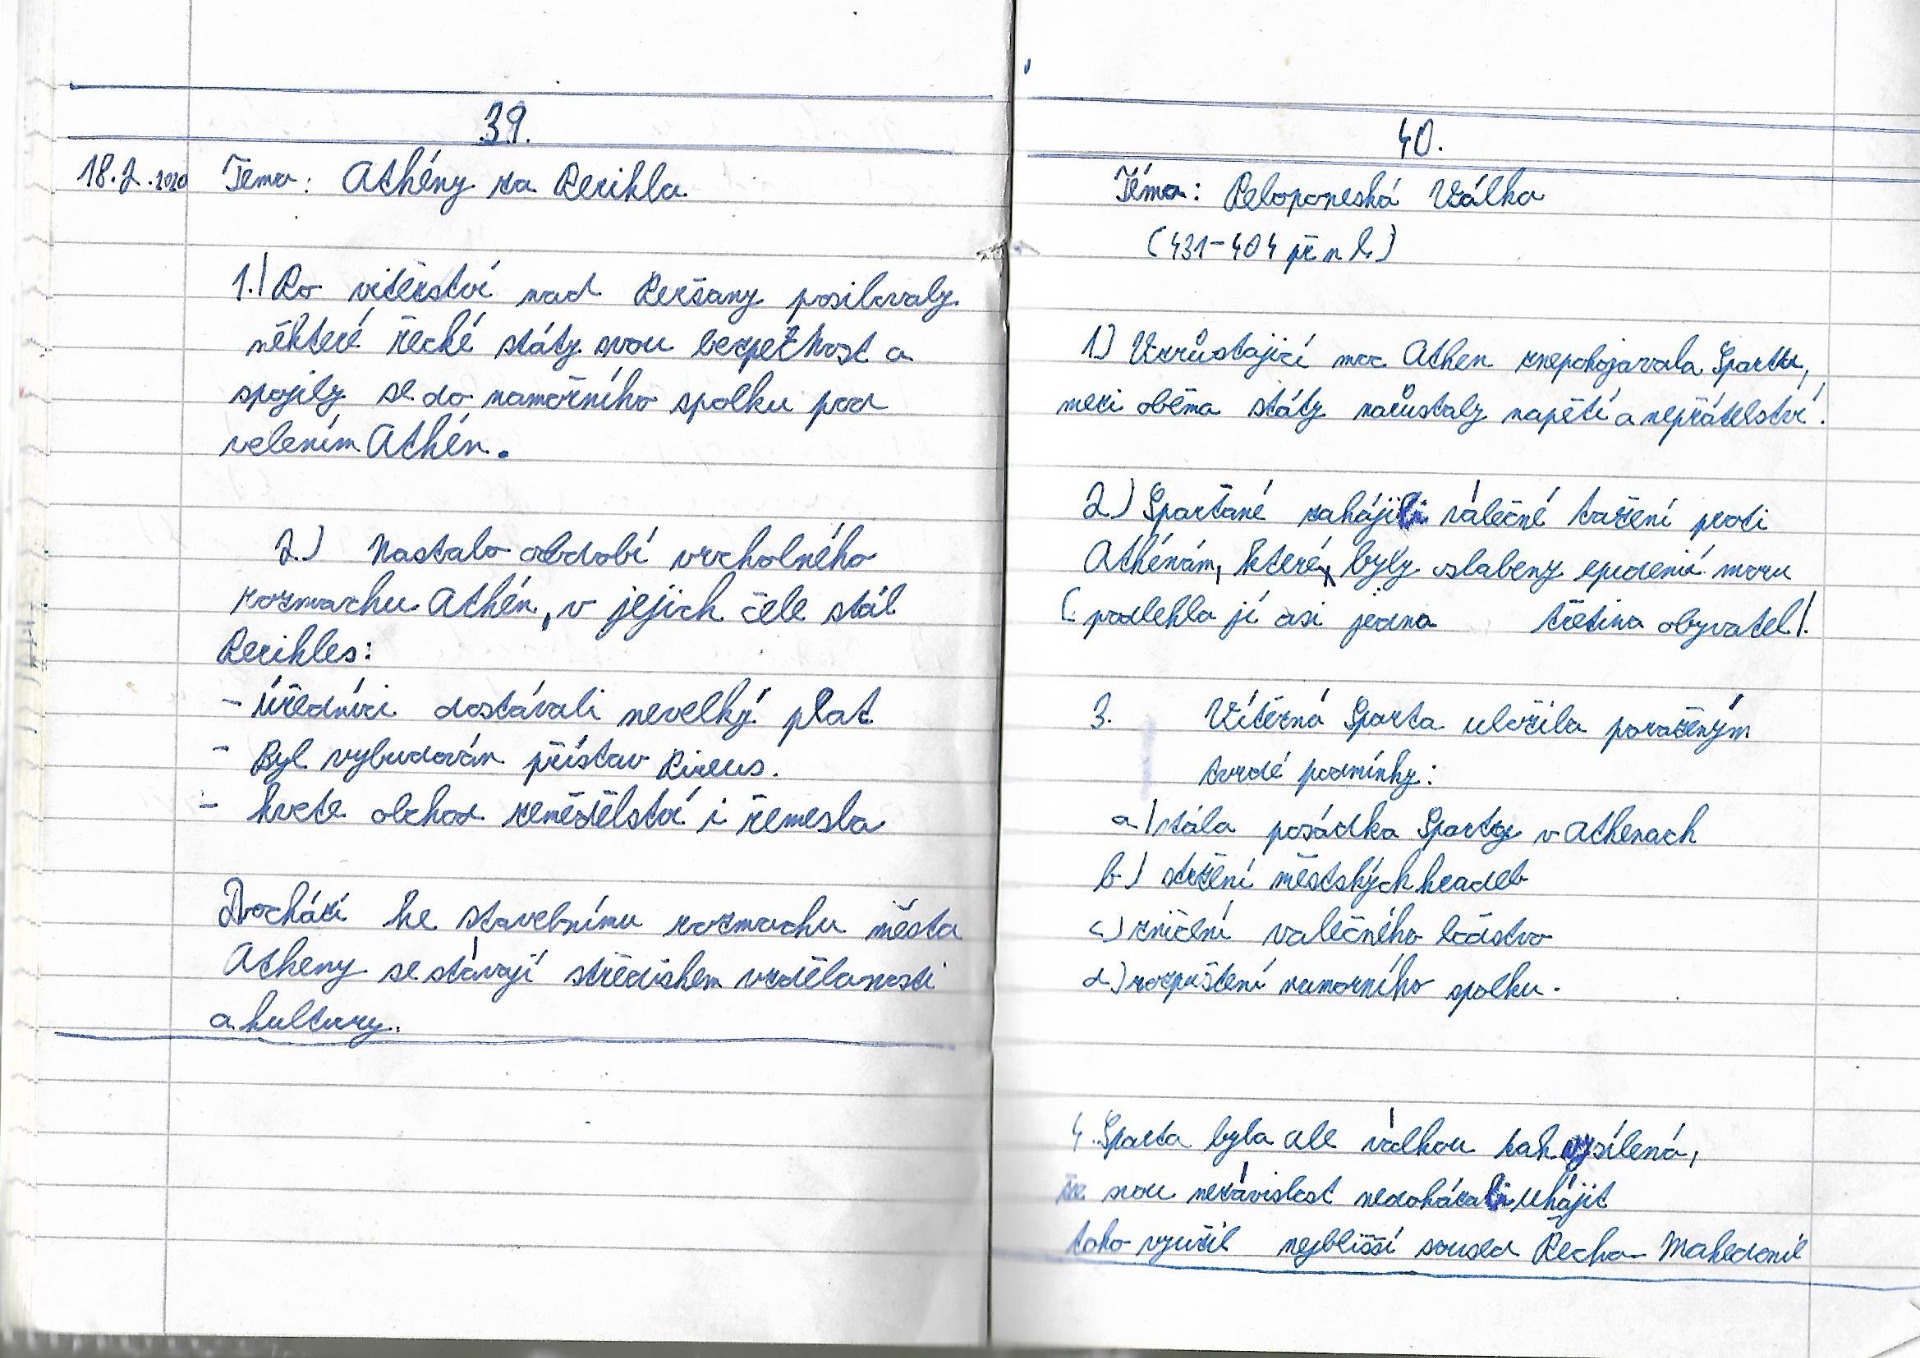 39.
18.2.2020 Téma: Athény za Perikla
1.) Po vítěství nad Peršany posilovaly
některé řecké státy svou bezpečnost a
spojily se do namořního spolku pod
velením Athén.
2.) Nastalo obdobi vrcholného
rozmachu Athén, v jejich čele stál
Perikles:
- Úředníci dostávali nevelký plat
- Byl vybudován přístav Pireus.
- kvete obchod zemědělství i řemesla
Dochází ke stavebnímu rozmachu města
Atheny se stávají střediskem vzdělanosti
a kultury.
40.
Téma: Peloponeská Válka
(431-404 př n l.)
1.) Vzrůstající moc Athen znepokojavala Spartu,
mezi oběma státy narůstaly napětí a nepřátelství.
2.) Sparťané zahájili válečné tažení proti
Athénám, které, byly oslabeny epidemií moru
(podlehla jí asi jedna třetina obyvatel).
3. Vítězná Sparta uložila poraženým
tvrdé podmínky:
a) stála posádka Sparty v Athenach
b.) stržení městských hradeb
c.) zničení valečného loďstvo
d.) rozpuštení namorního spolku.
4. Sparta byla ale válkou tak vysílená,
že svou nezávislost nedokázali uhájit
toho využil nejbližší soused Řecka - Makedonie